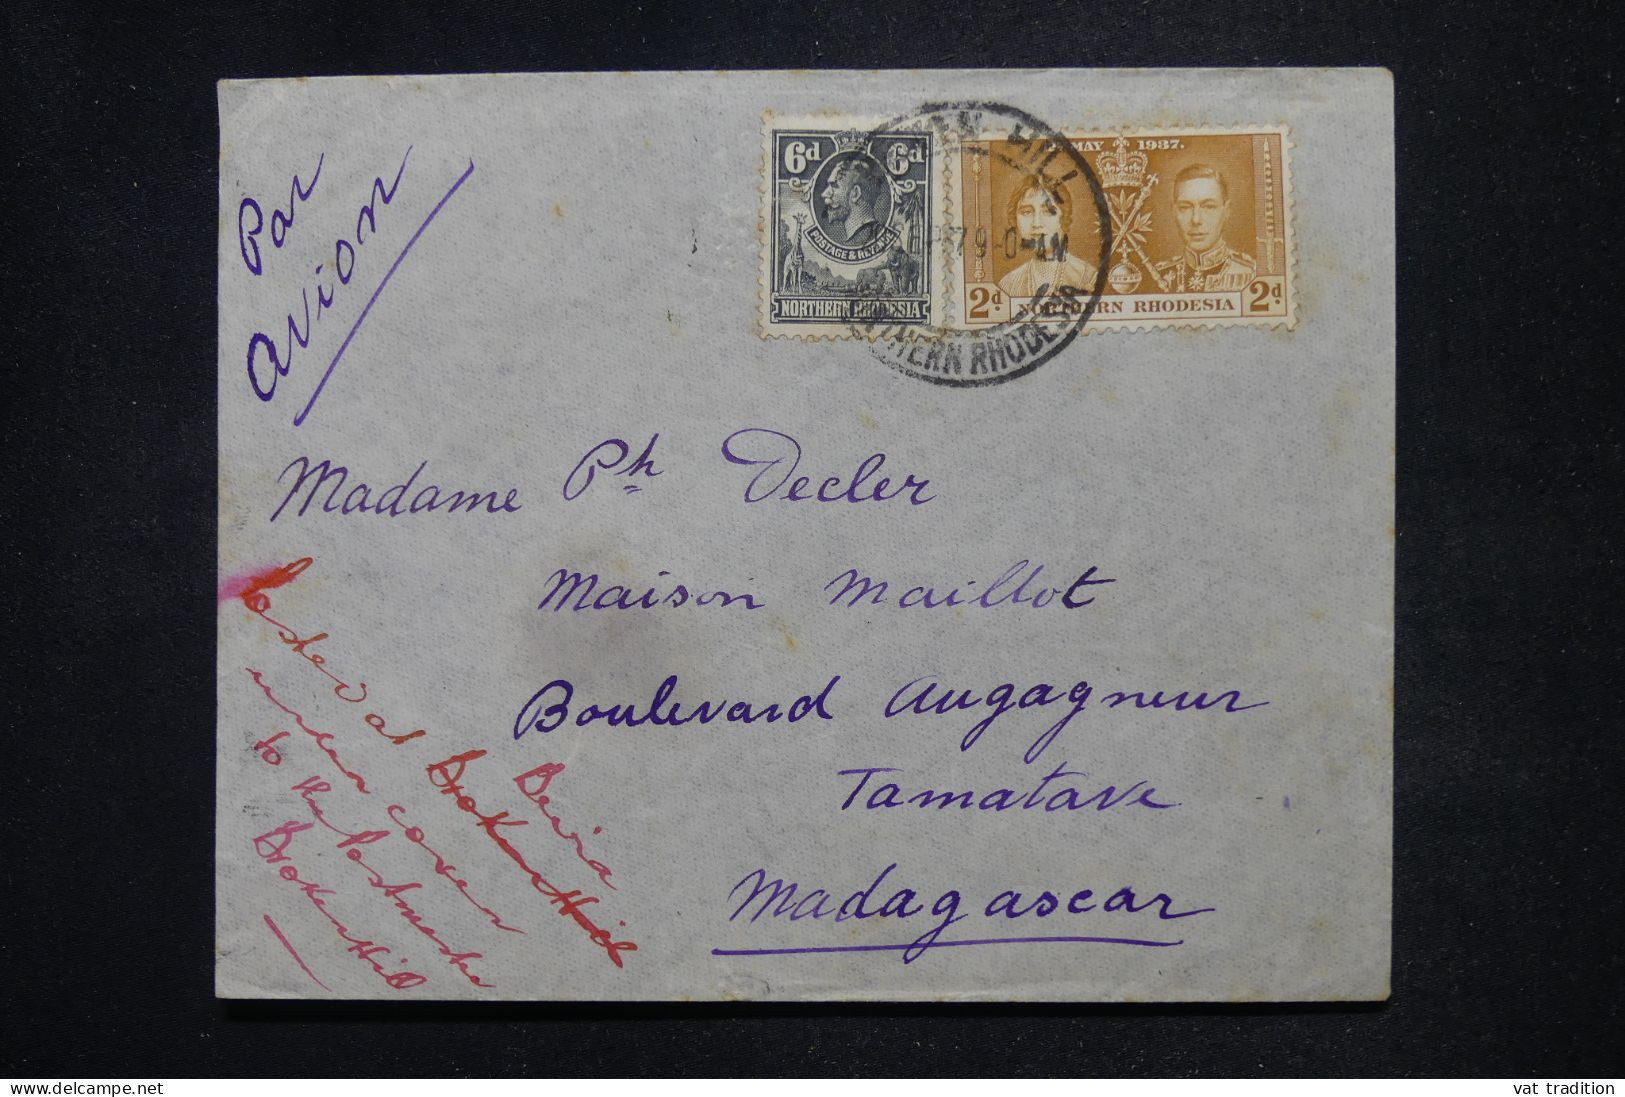 Par
avion
6d 6d
POSTAGE & REVENUE
NORTHERN RHODESIA
MAY 1937.
2d. NORTHERN RHODESIA 2d.
KEN HILL
37 9-0-AM
NORTHERN RHODESIA
Madame Ph Decler
Maison Maillot
Boulevard Augagneur
Tamatave
Madagascar
Posted at Broken Hill
under cover
to the Postmaster
Broken Hill
vat tradition